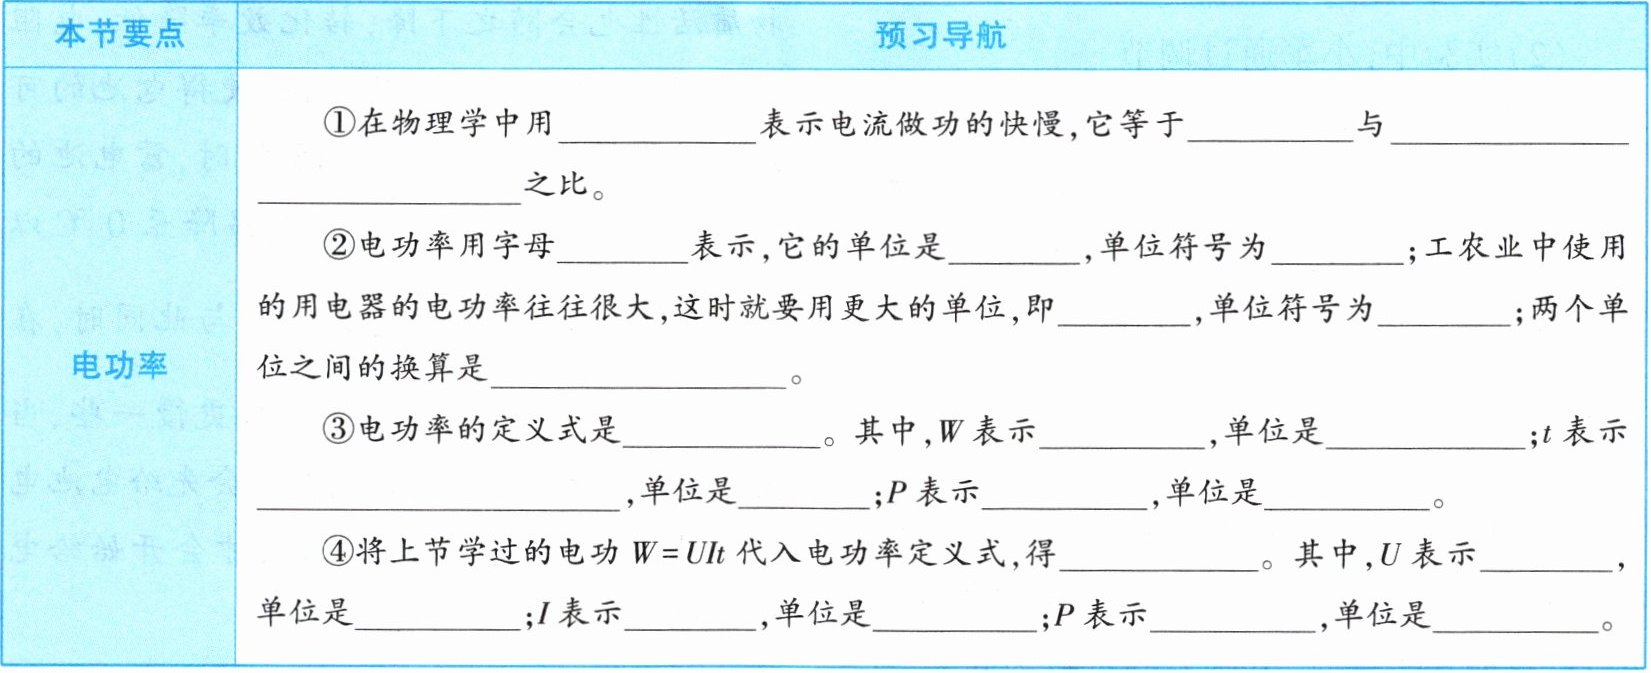 本节要点 预习导航
①在物理学中用____________表示电流做功的快慢,它等于__________与______________
________________之比。
②电功率用字母________表示,它的单位是________,单位符号为________;工农业中使用
的用电器的电功率往往很大,这时就要用更大的单位,即________,单位符号为________;两个单
位之间的换算是__________________。
电功率
③电功率的定义式是____________。其中,W表示__________,单位是____________;t表示
______________________,单位是________;P表示__________,单位是__________。
④将上节学过的电功W=UIt代入电功率定义式,得____________。其中,U表示________,
单位是__________;I表示________,单位是__________;P表示__________,单位是__________。